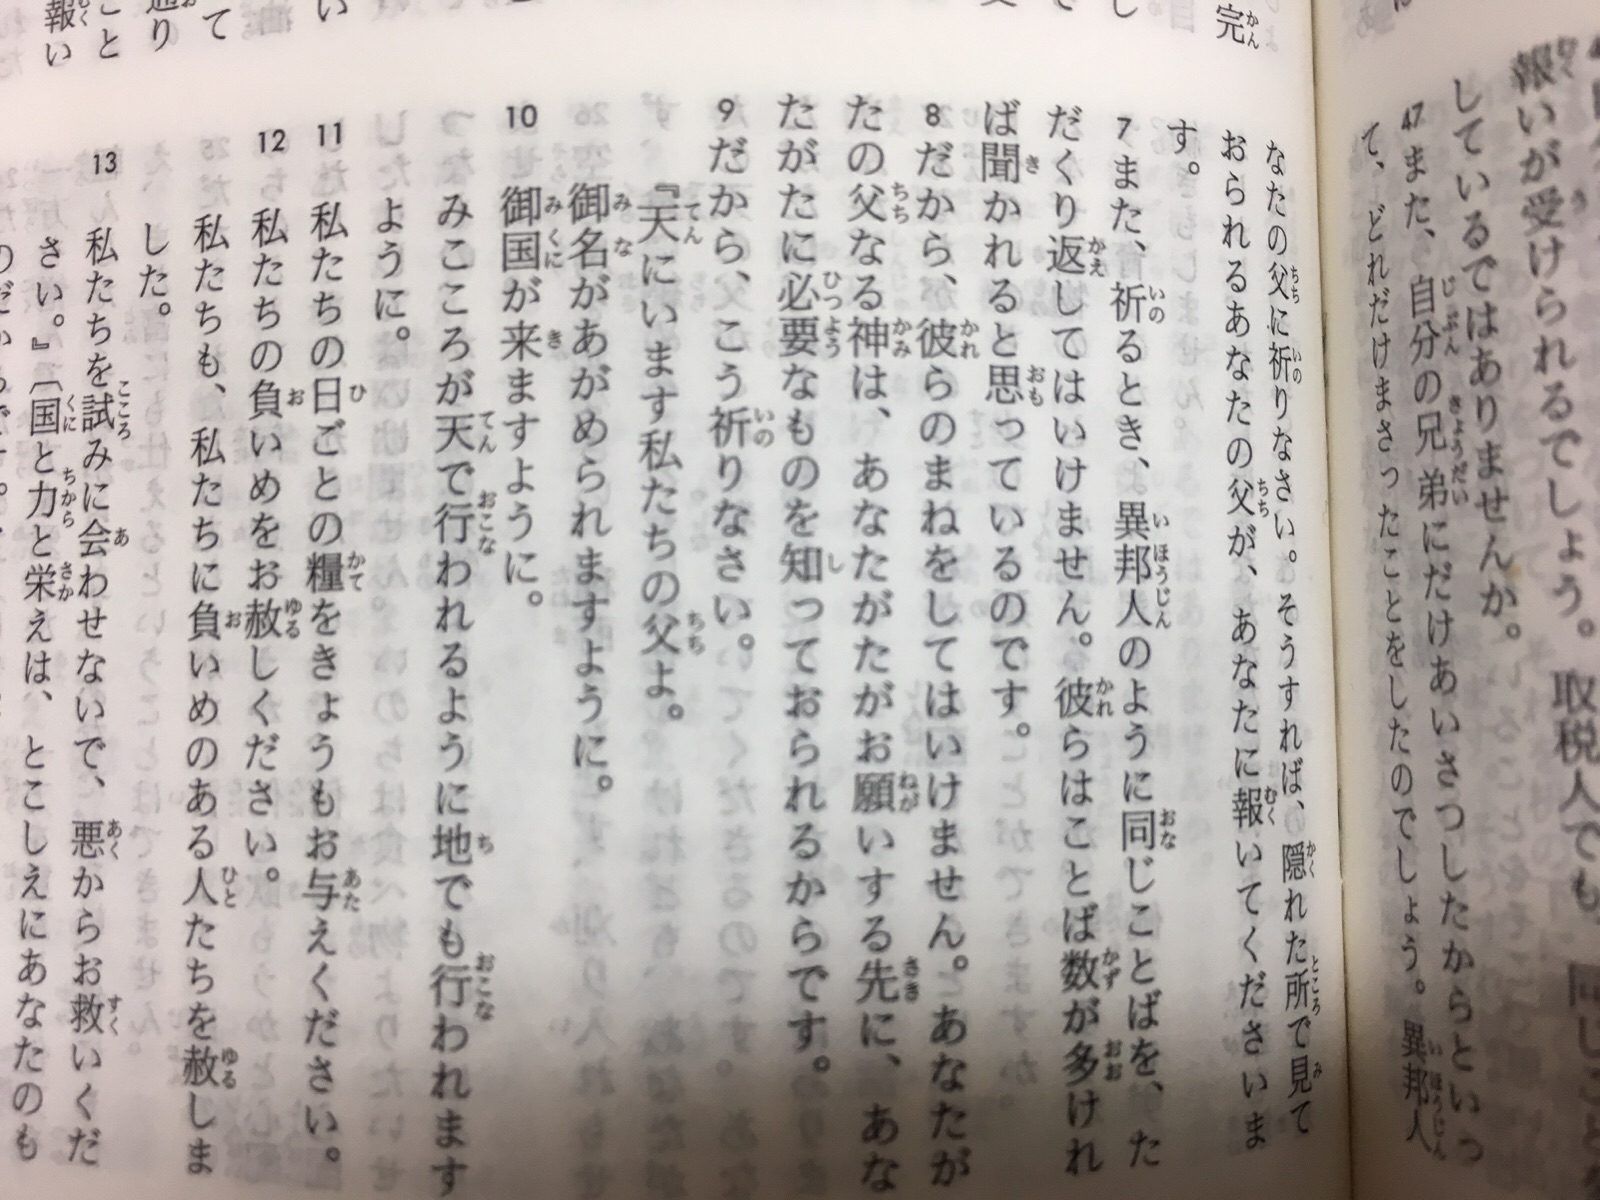 報いが受けられるでしょう。取税人でも、同じことを
しているではありませんか。
47 また、自分の兄弟にだけあいさつしたからといっ
て、どれだけまさったことをしたのでしょう。異邦人
完
なたの父に祈りなさい。そうすれば、隠れた所で見て
おられるあなたの父が、あなたに報いてくださいま
す。
7 また、祈るとき、異邦人のように同じことばを、た
だくり返してはいけません。彼らはことば数が多けれ
ば聞かれると思っているのです。
8 だから、彼らのまねをしてはいけません。あなたが
たの父なる神は、あなたがたがお願いする先に、あな
たがたに必要なものを知っておられるからです。
9 だから、こう祈りなさい。
『天にいます私たちの父よ。
御名があがめられますように。
10 御国が来ますように。
みこころが天で行われるように地でも行われます
ように。
11 私たちの日ごとの糧をきょうもお与えください。
12 私たちの負いめをお赦しください。
私たちも、私たちに負いめのある人たちを赦しま
した。
13 私たちを試みに会わせないで、悪からお救いくだ
さい。』〔国と力と栄えは、とこしえにあなたのも
のだからです。
て
通り
こと
報い